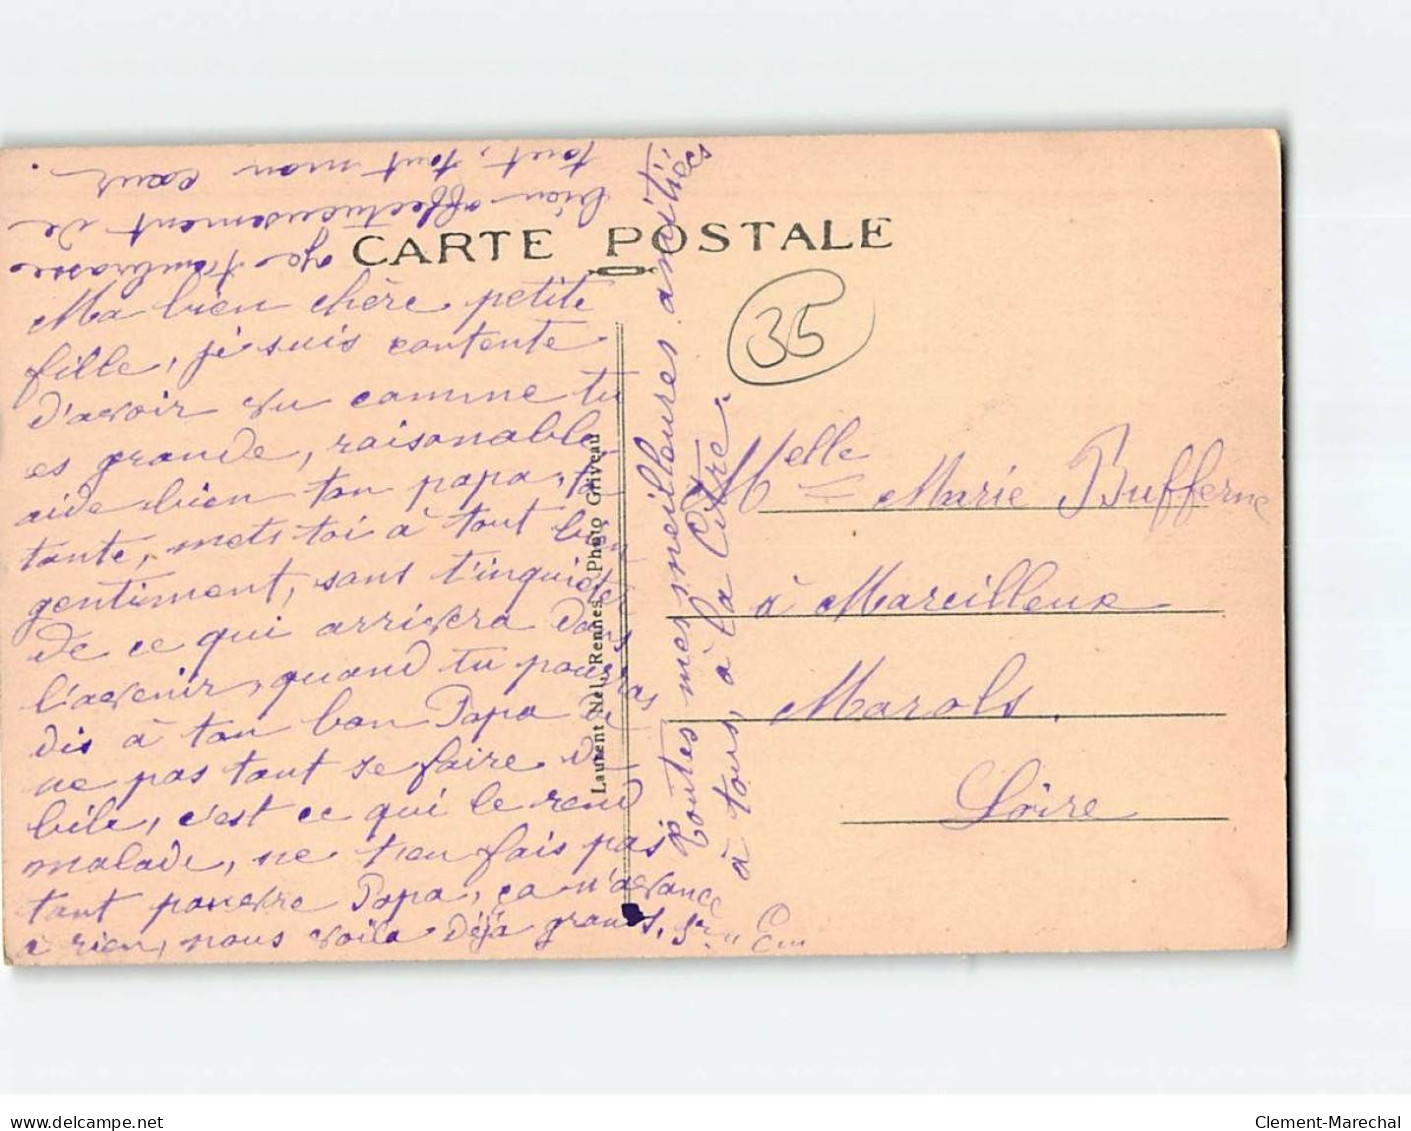 CARTE POSTALE
35
Ma bien chère petite
fille, je suis contente
d'avoir vu comme tu
es grande, raisonable
aide bien ton papa, ta
tante, mets toi à tout bien
gentiment, sans t'inquiéter
de ce qui arrivera dans
l'avenir, quand tu pourras
dis à ton bon Papa de
ne pas tant se faire de
bile, c'est ce qui le rend
malade, ne t'en fais pas
tant pauvre Papa, ça n'avance
à rien, nous voila déjà grands, Sr
je t'embrasse
bien affectueusement de
tout, tout mon cœur.
Toutes mes meilleures amitiés
à tous, à la
Laurent Nel, Rennes. Photo Griveau
Melle Marie Bufferne
à Marcilleux
Marols.
Loire
www.delcampe.net
Clement-Marechal